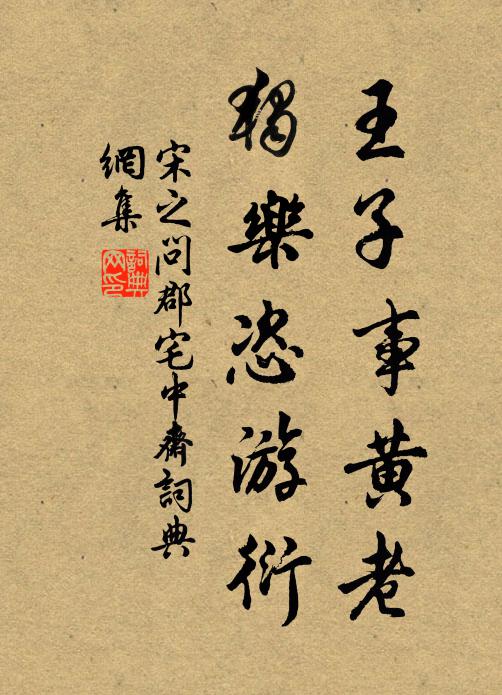 王子事黄老
獨樂恣游衍
宋之問郡宅中齋詞典
網集
詞典
网印